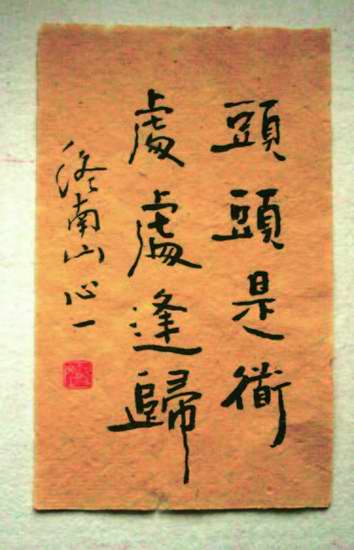 頭頭是衟
處處逢歸
終南山心一